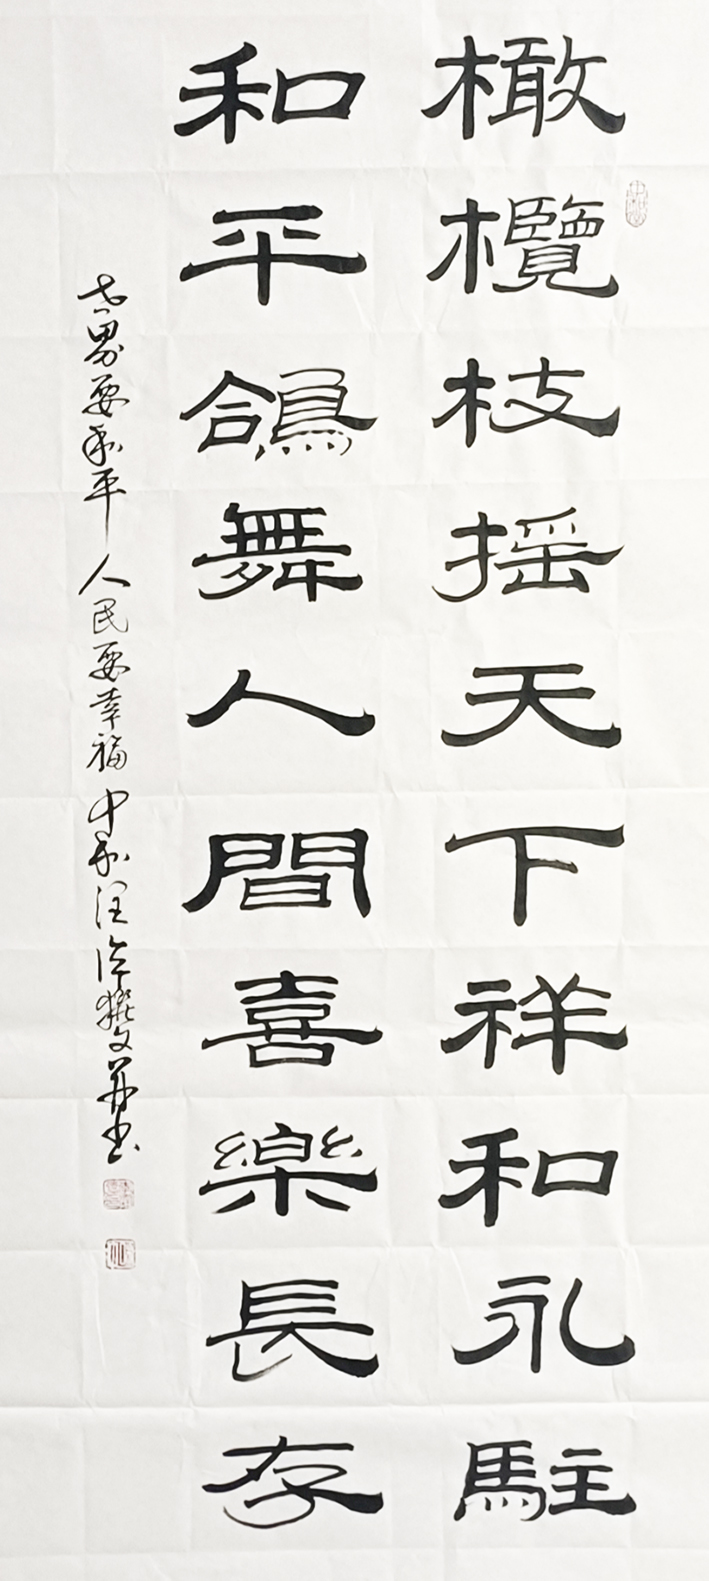 橄欖枝摇天下祥和永駐
和平鴿舞人間喜樂長存
世界要和平人民要幸福中和汪 撰文并书